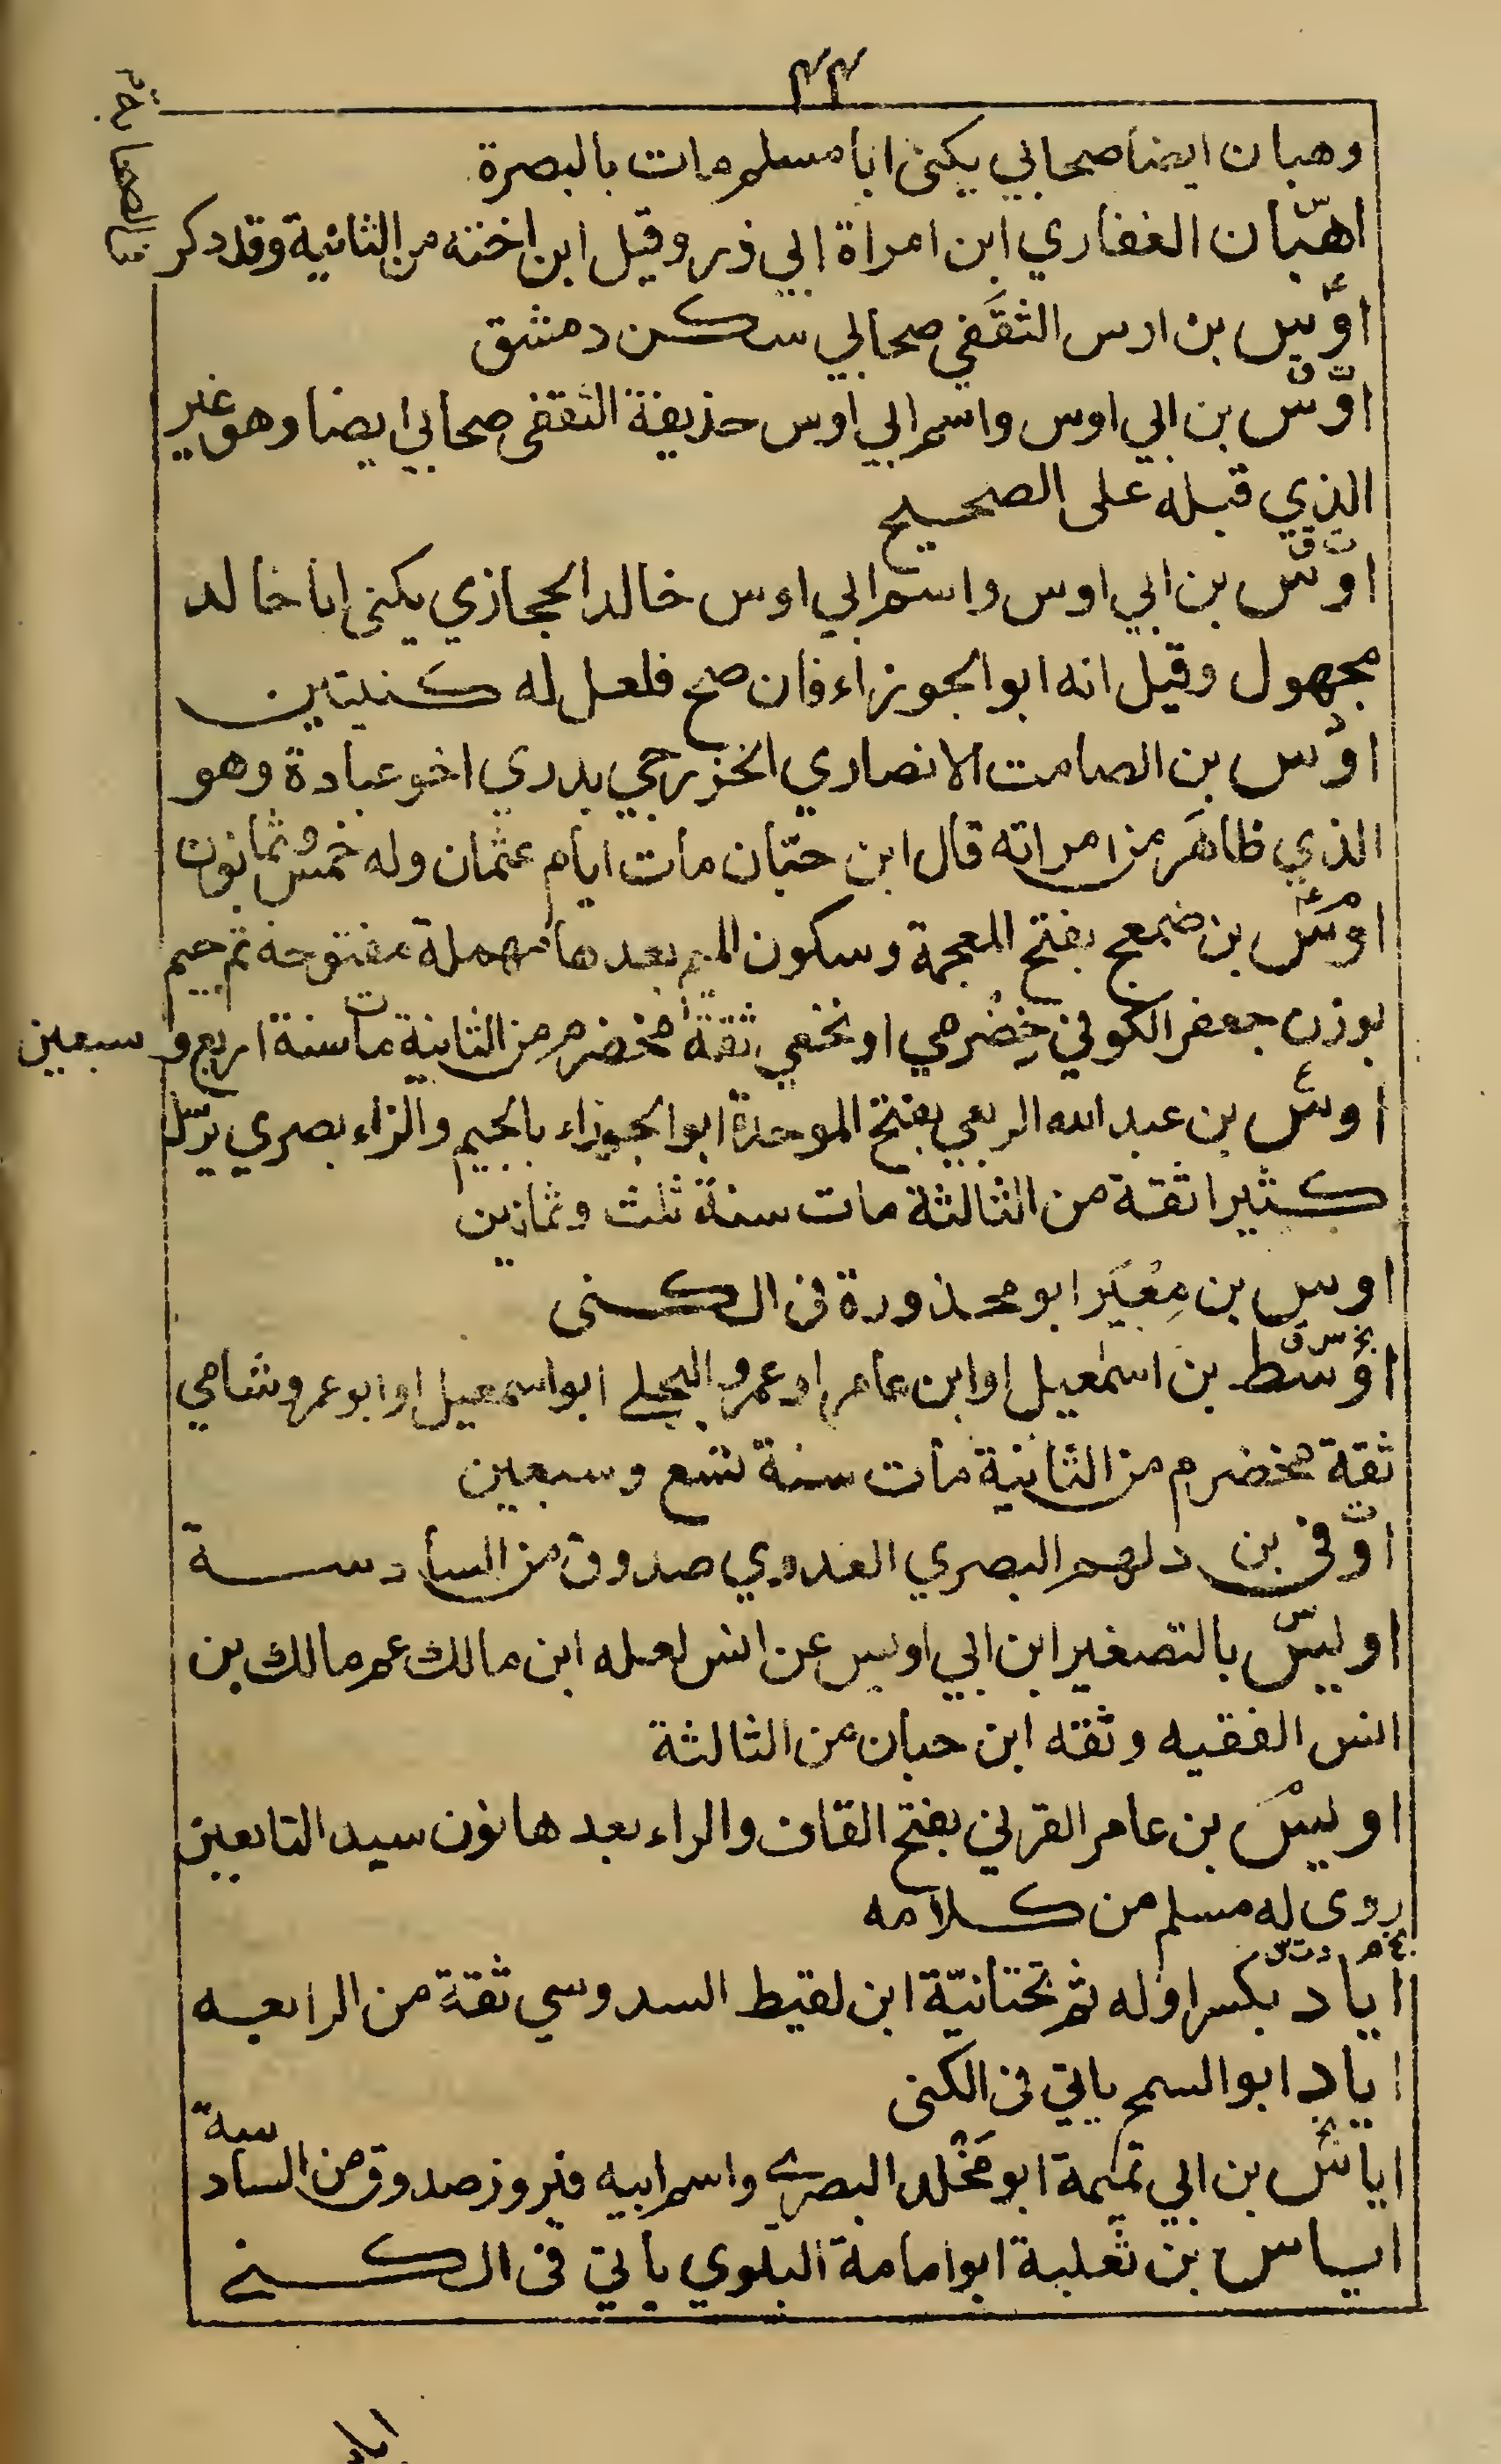 ٤٤
وهبان ايضا صحابي يكنى ابا مسلم مات بالبصرة
اهبّان الغفاري ابن امراة ابي ذر وقيل ابن اخته من الثانية وقد ذكر
في الصحابة
اوس بن اوس الثقفي صحابي سكن دمشق
اوس بن ابي اوس واسم ابي اوس حذيفة الثقفى صحابي ايضا وهو غير
الذي قبله على الصحيح
ت ق
اوس بن ابي اوس واسم ابي اوس خالد الحجازي يكنى ابا خالد
مجهول وقيل انه ابو الجوزاء فان صح فلعل له كنيتين
اوس بن الصامت الانصاري الخزرجي بدري اخو عبادة وهو
الذي ظاهَر من امراته قال ابن حبّان مات ايام عثمان وله خمس وثمانون
اوس بن ضمعج بفتح المعجمة وسكون الميم بعدها مهملة مفتوحة ثم جيم
بوزن جعفر الكوفي حضرمي او نخعي ثقة مخضرم من الثانية مات سنة اربع وسبعين
اوس بن عبد الله الربعي بفتح الموحدة ابو الجوزاء بالجيم والزاء بصري يرسل
كثيرا ثقة من الثالثة مات سنة ثلث وثمانين
اوس بن مِعْيَر ابو محذورة فى الكنى
بخ س ق
اوسط بن اسمٰعيل او ابن عامر او عمرو البجلے ابو اسمعيل او ابو عمرو شامي
ثقة مخضرم من الثانية مات سنة تسع وسبعين
اوفى بن دلهم البصري العدوي صدوق من السادسة
اويس بالتصغير ابن ابي اويس عن انس لعله ابن مالك عم مالك بن
انس الفقيه وثقه ابن حبان من الثالثة
اويس بن عامر القرني بفتح القاف والراء بعدها نون سيد التابعين
روى له مسلم من كلامه
بخ م د ت س
اياد بكسر اوله ثم تحتانيّة ابن لقيط السدوسي ثقة من الرابعه
اياد ابو السمح ياتي فى الكنى
اياس بن ابي تميمة ابو مَخْلد البصرے واسم ابيه فيروز صدوق من السادسة
اياس بن ثعلبة ابو امامة البلوي ياتي فى الكنے
اياس